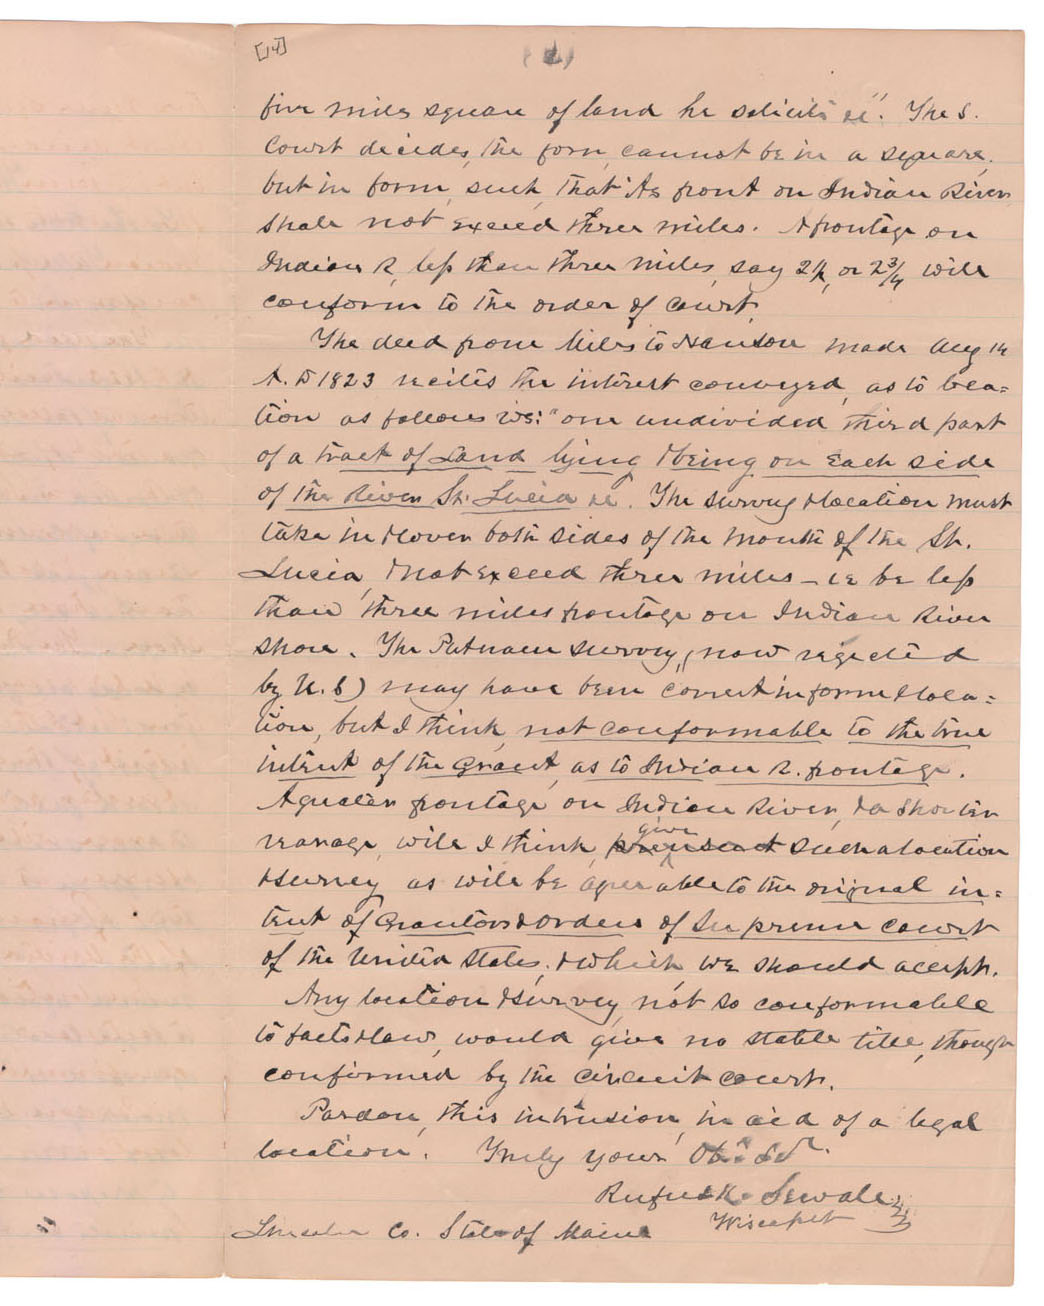 [14]
(2)
five miles square of land he solicits &c". The S.
Court decides, the form, cannot be in a square,
but in form, such, that its front on Indian River,
shall not exceed three miles. A frontage on
Indian R, less than three miles, say 2½, or 2¾ will
conform to the order of Court.
The deed from Miles to Hanson made Aug 14
A.D 1823 recites the interest conveyed, as to loca=
tion as follows viz: "one undivided third part
of a tract of Land lying & being on Each side
of the River St. Lucia &c. The survey & location must
take in & cover both sides of the mouth of the St.
Lucia, & not exceed three miles – ie be less
than three miles frontage on Indian River
shore. The Putnam survey, (now rejected
by U.S) may have been correct in form & loca=
tion, but I think, not conformable to the true
intent of the Grant, as to Indian R. frontage.
A frontage, on Indian River,
will I think, give such a location
& survey as will be agreeable to the original in=
tent of Grantors & orders of Supreme Court
of the United States, & which we should accept.
Any location & survey, not so conformable
to facts & law, would give no stable title, though
confirmed by the circuit court.
Pardon, this intrusion, in aid of a legal
location. Truly yours Ob. Svt.
Rufus K. Sewall
Wiscasset
Lincoln Co. State of Maine